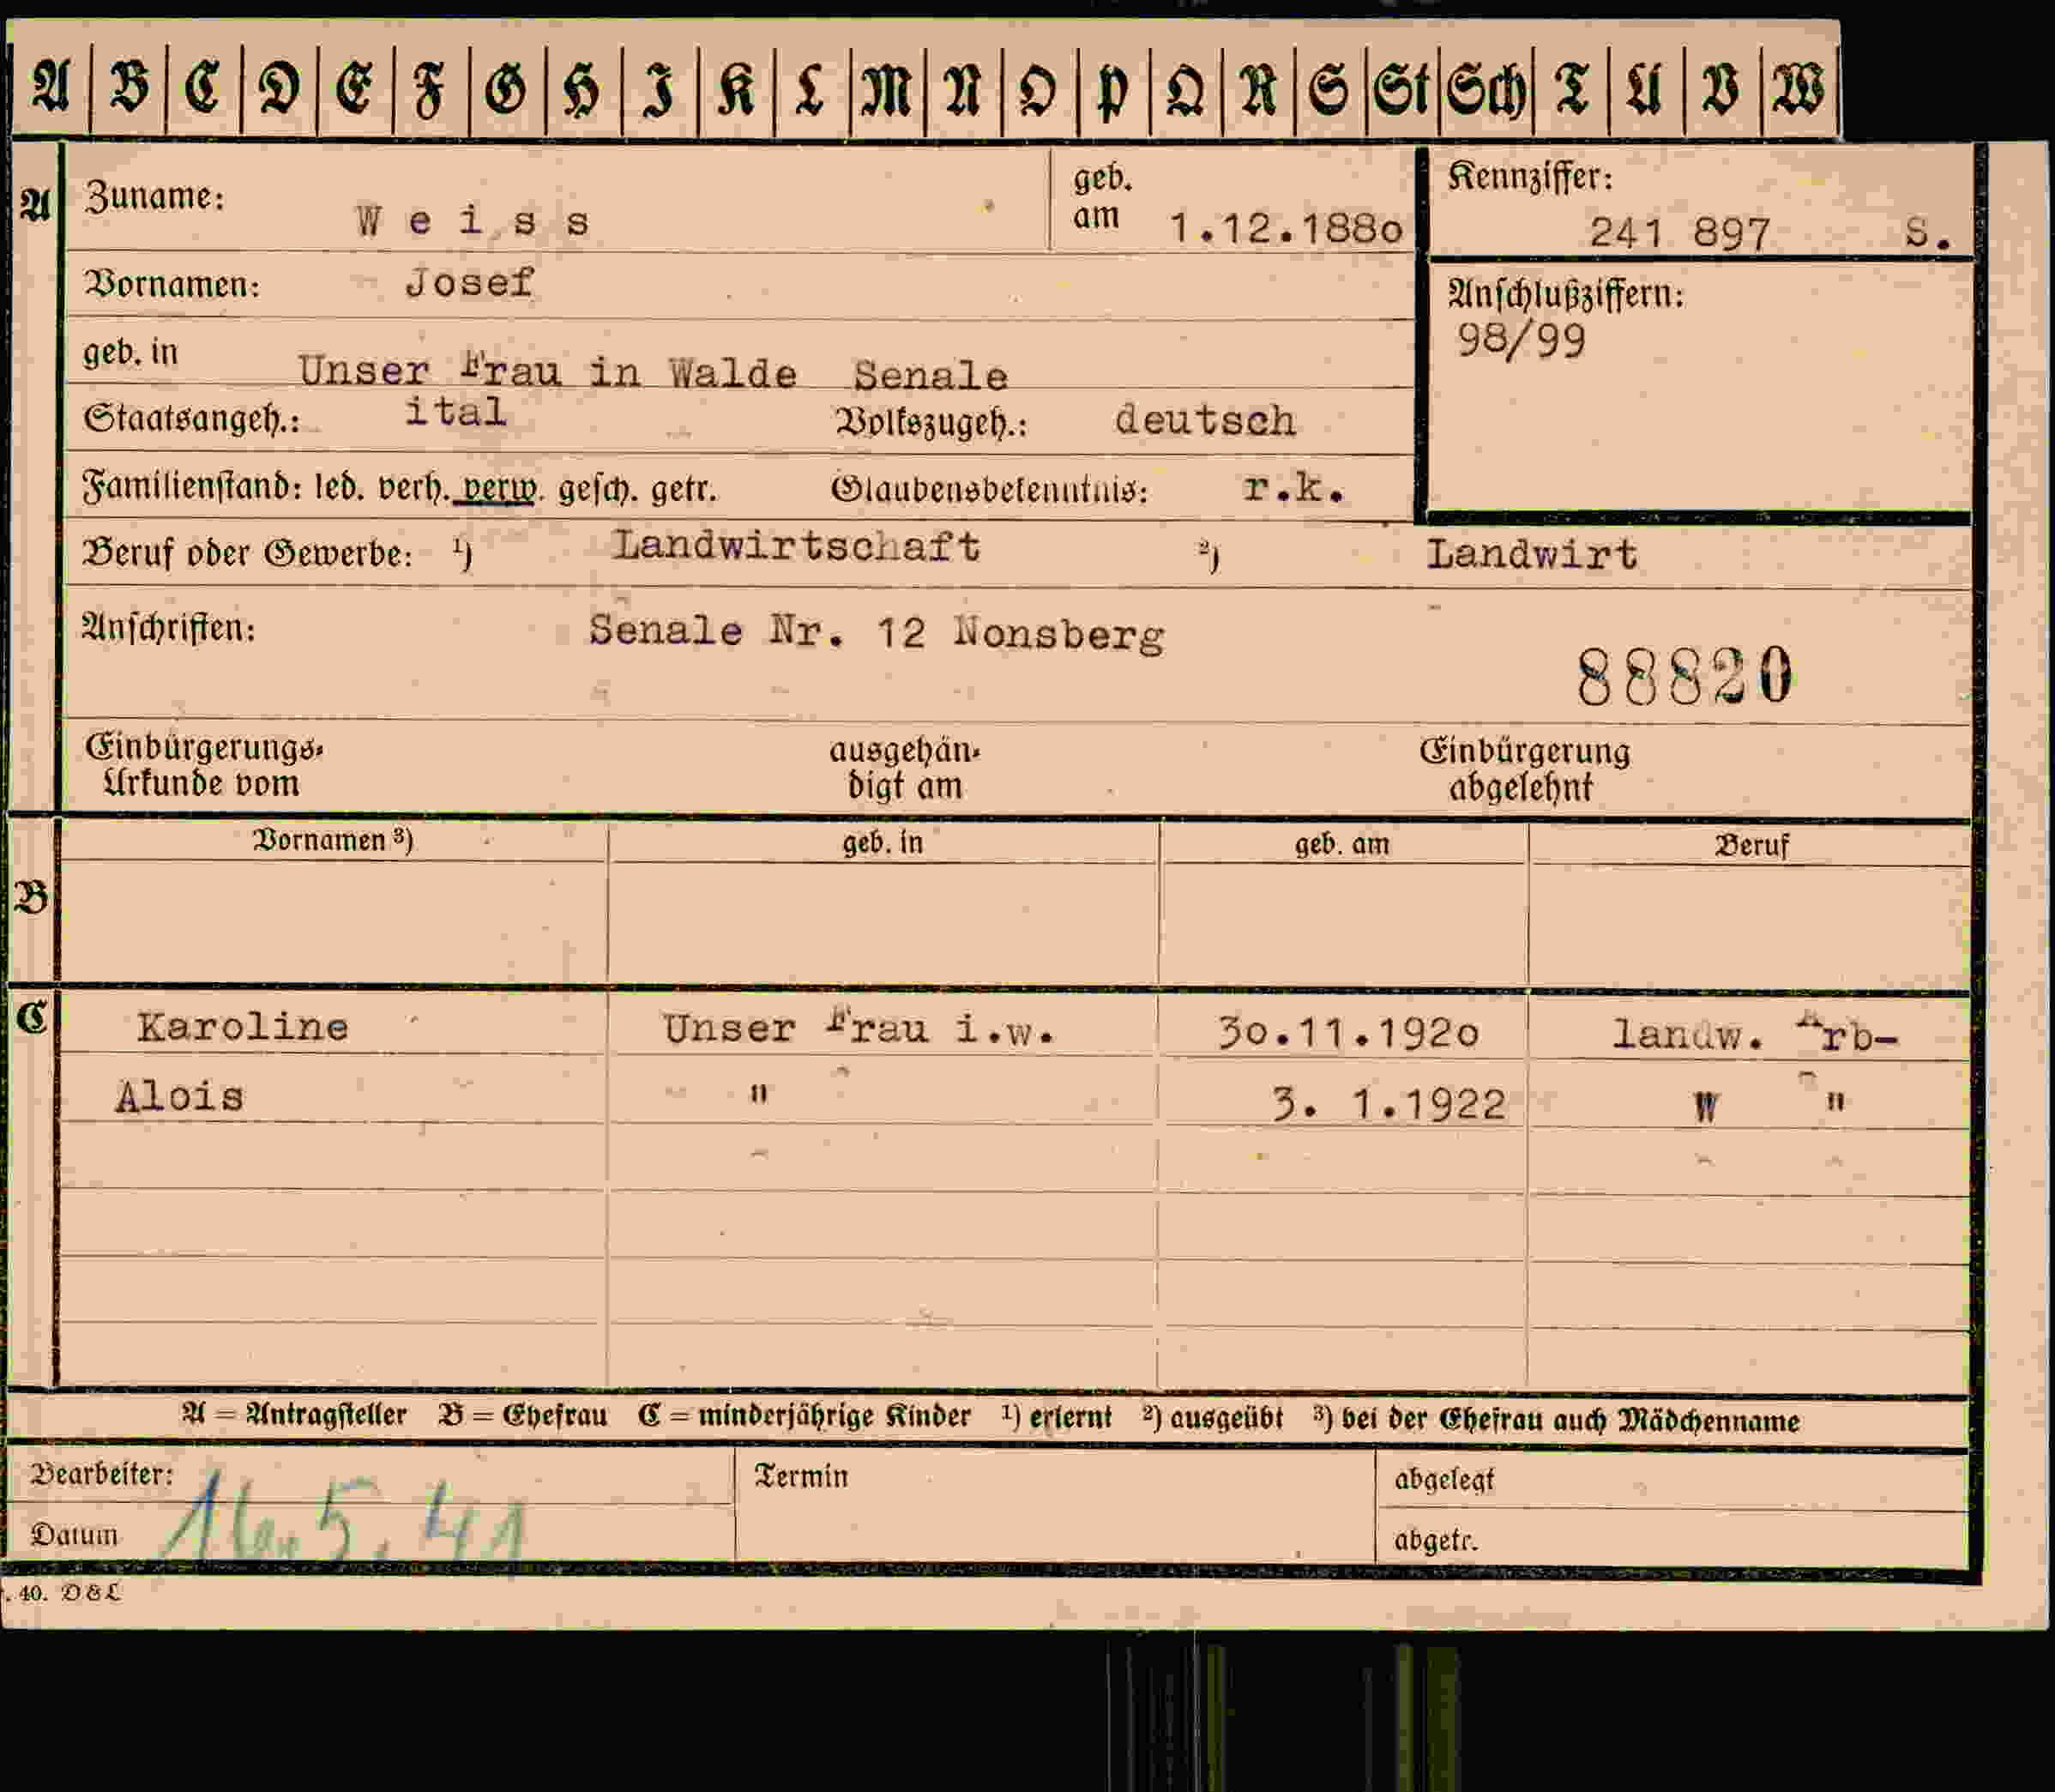 A B C D E F G H I K L M N O P Q R S St Sch T U V W
A Zuname: Weiss geb. am 1.12.1880 Kennziffer: 241 897 S.
Vornamen: Josef Anschlußziffern:
98/99
geb. in Unser Frau in Walde Senale
Staatsangeh.: ital Volkszugeh.: deutsch
Familienstand: led. verh. verw. gesch. getr. Glaubensbekenntnis: r.k.
Beruf oder Gewerbe: 1) Landwirtschaft 2) Landwirt
Anschriften: Senale Nr. 12 Nonsberg
88820
Einbürgerungs- ausgehän- Einbürgerung
Urkunde vom digt am abgelehnt
Vornamen 3) geb. in geb. am Beruf
B
C Karoline Unser Frau i.w. 30.11.1920 landw. Arb-
Alois " 3. 1.1922 " "
A = Antragsteller B = Ehefrau C = minderjährige Kinder 1) erlernt 2) ausgeübt 3) bei der Ehefrau auch Mädchenname
Bearbeiter: Termin abgelegt
Datum 16.5.41 abgetr.
. 40. D&L